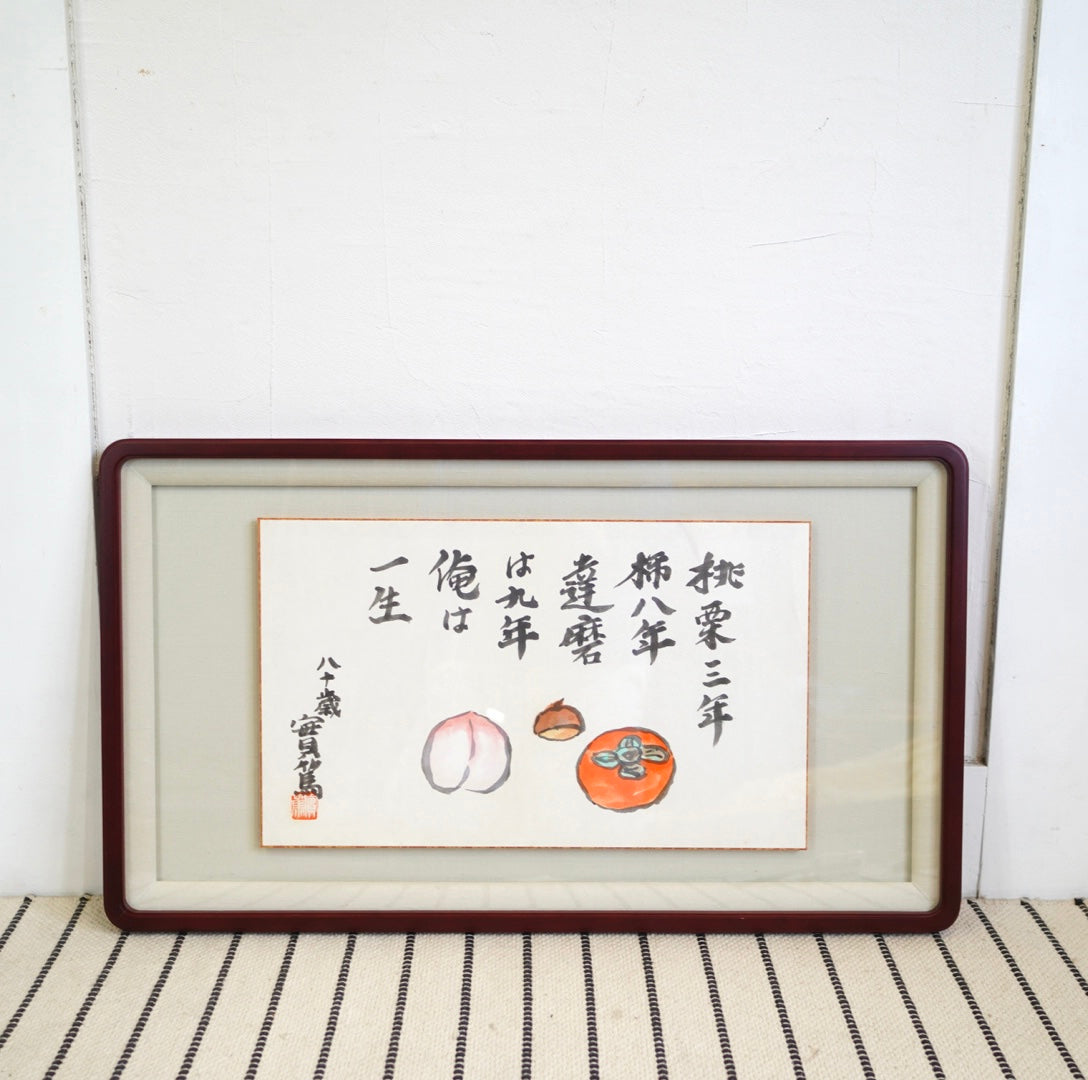 桃栗三年
柿八年
達磨
は九年
俺は
一生
八十歳
實篤